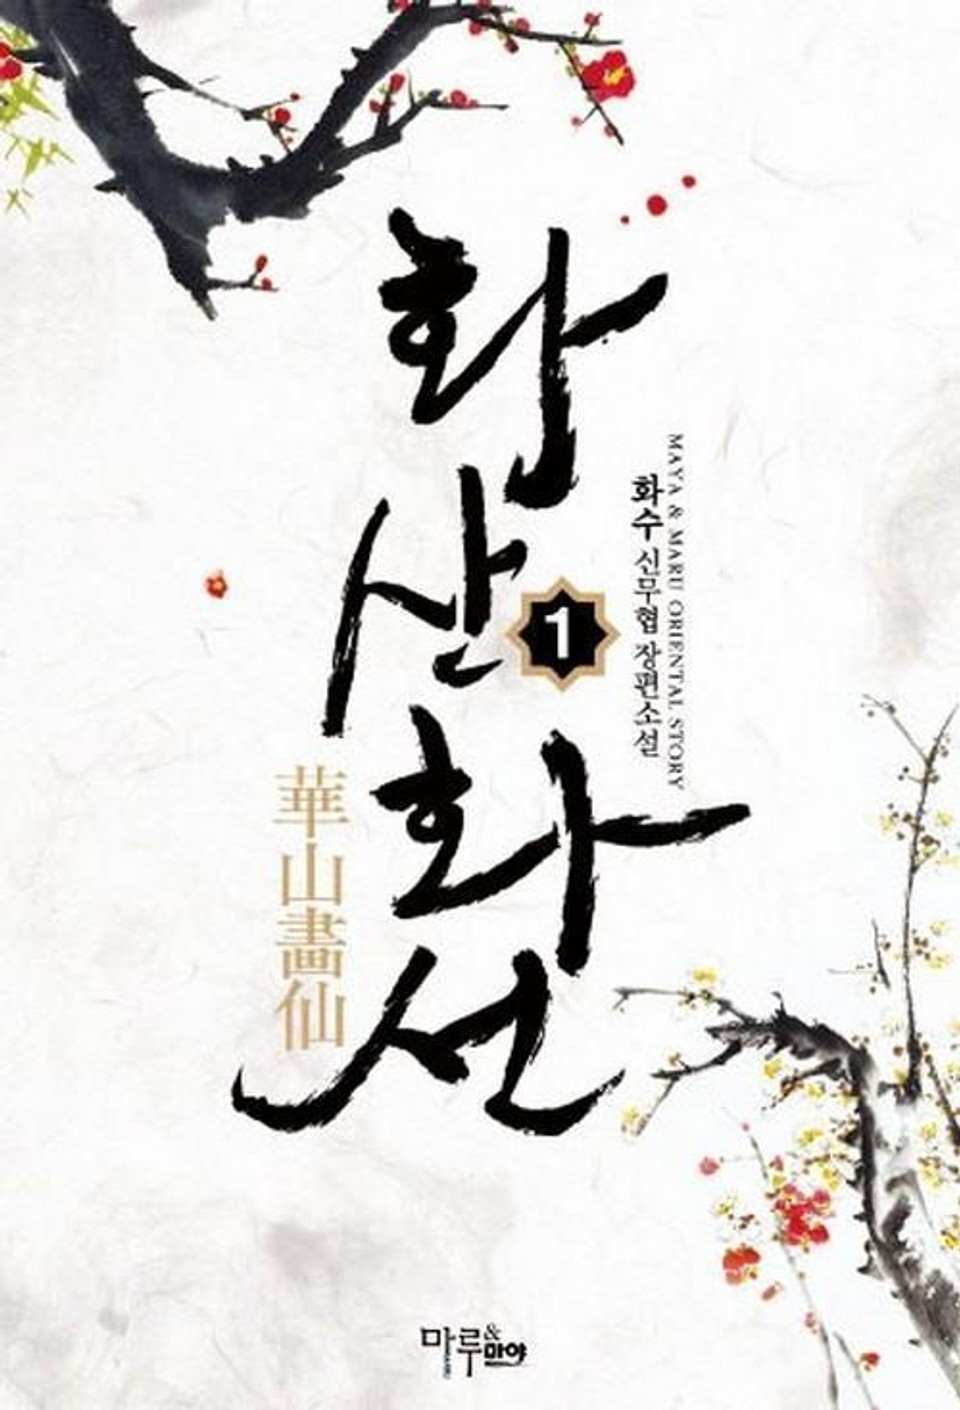 화산화선
1
華山畵仙
화수 신무협 장편소설
MAYA & MARU ORIENTAL STORY
마루&마야